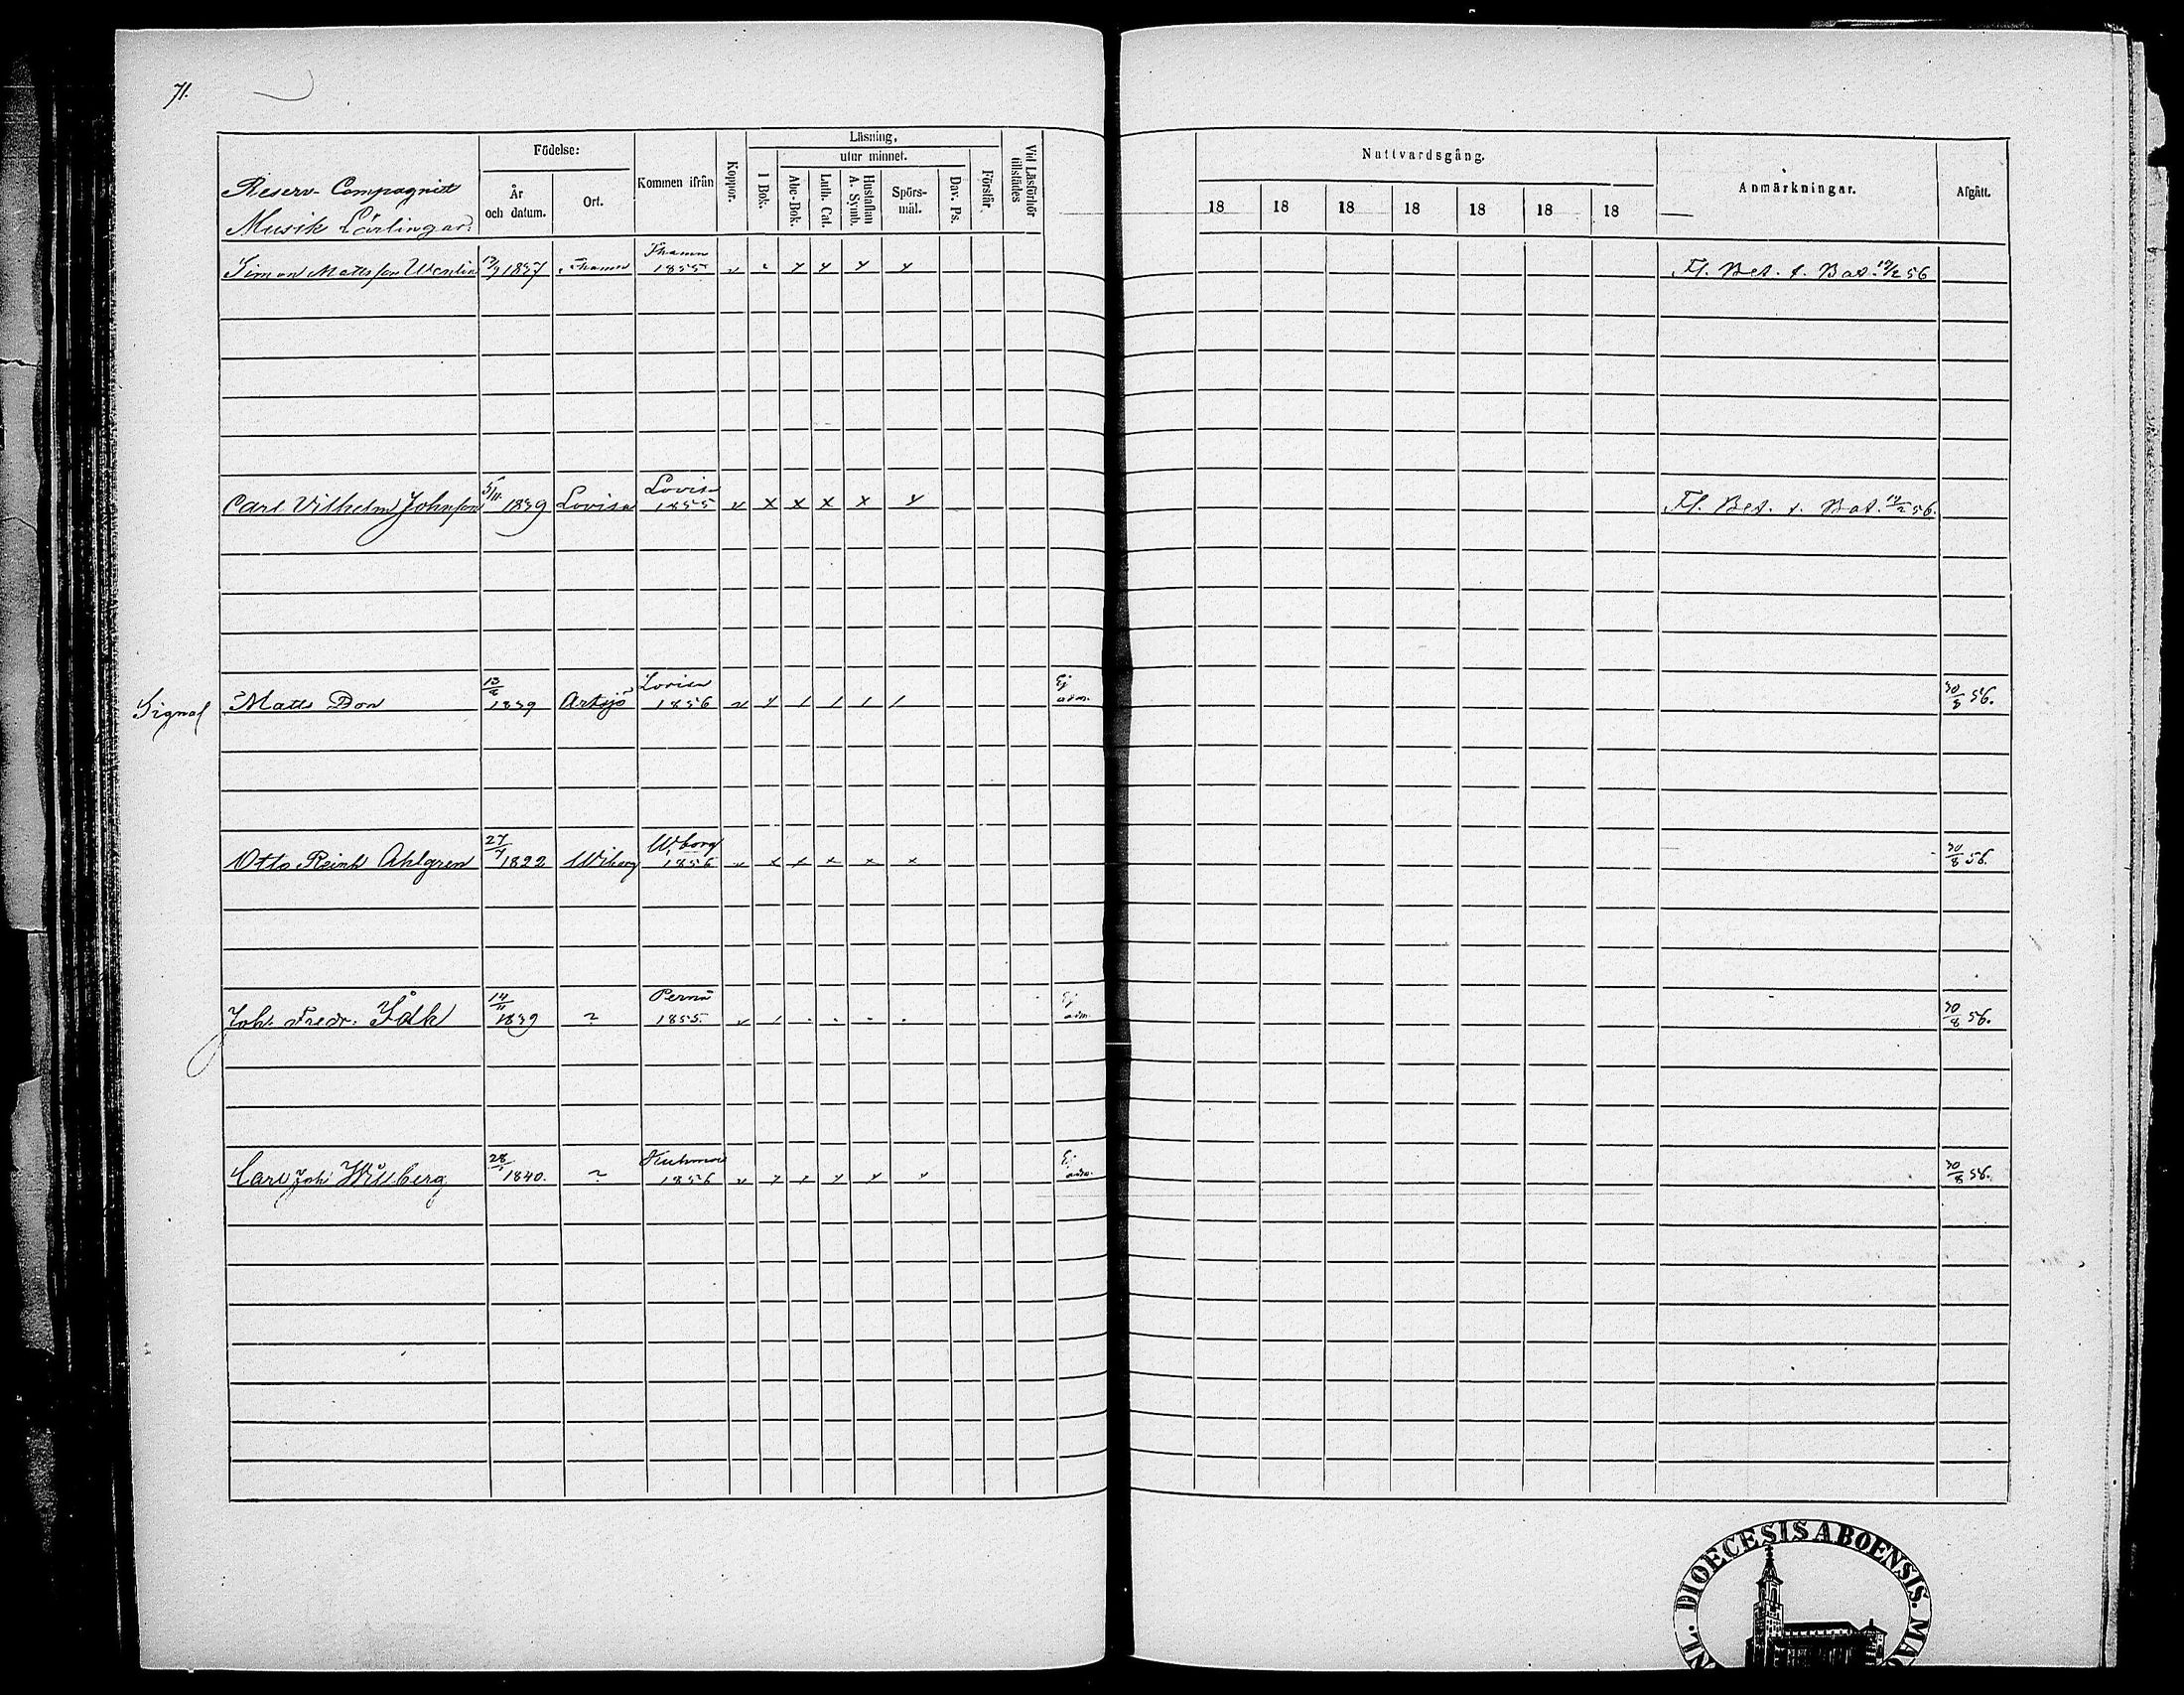 71.
Läsning.
Födelse:
utur minnet.
Reserv-Compagniets
Musik Lärlingar.
År
och datum.
Ort.
Kommen ifrån
Koppor.
I Bok.
Abc-Bok.
Luth. Cat.
Hustaflan
A. Symb.
Spörs-
mål.
Dav. Ps.
Förstår
Vid Läsförhör
tillstädes
Nattvardsgång.
18 18 18 18 18 18 18
Anmärkningar.
Afgått.
Simon Mattsson 1855
Fl. Bet. f. Bat. 56
Lovisa
Carl Vilhelm Johnson 5/11 1839 Lovisa 1855 v x x x x y
Fl. Bet. f. Bat. 56.
Signal
Lovisa
Matts Don 13/8 1839 Artsjö 1856 v y / / / / Ej adm. 30/8 56.
Wiborg
Otto Reinh Ahlgren 27/7 1822 Wiborg 1856 v x x x x x 30/8 56.
Perno
Joh. Fredr. 14/11 1839 ? 1855. v / Ej adm. 30/8 56.
Carl Joh 28 1840. ? 1856 Ej adm. 30/8 56.
DIOECESIS ABOENSIS.